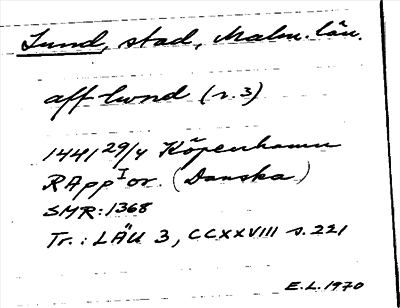 Lund, stad, Malm. län.
aff lwnd (r. 3)
1441 29/4 Köpenhamn
RApp I or. (Danska)
SMR: 1368
Tr.: LÄU 3, CCXXVIII s. 221
E.L. 1970